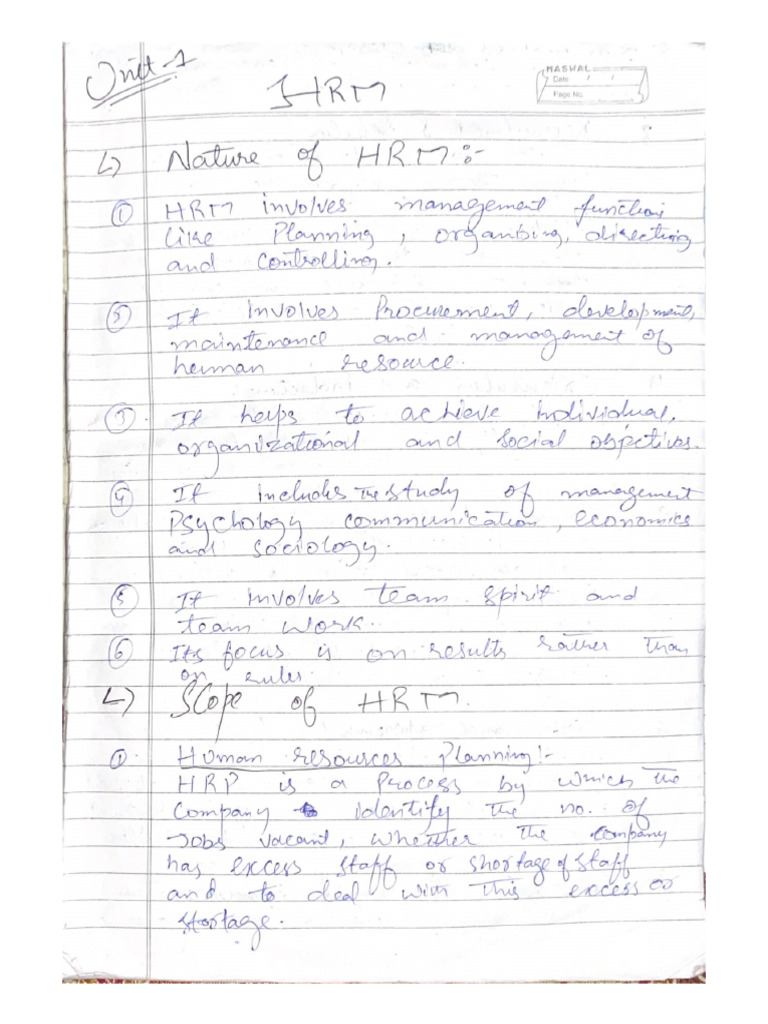 Unit-1
MASHAL
Date / /
Page No.
HRM
↳ Nature of HRM:-
① HRM involves management function
like Planning, organbing, directing
and controlling.
② It involves Procurement, development,
maintenance and management of
human resource.
③ It helps to achieve Individual,
organizational and social objectives.
④ It includes The study of management
Psychology communication, economics
and sociology.
⑤ It involves team spirit and
team work.
⑥ Its focus is on results rather than
on rules.
↳ Scope of HRM.
①. Human resources Planning:-
HRP is a Process by which the
Company identify the no. of
Jobs vacant, whether the company
has excess staff or shortage of staff
and to deal with this excess or
shortage.